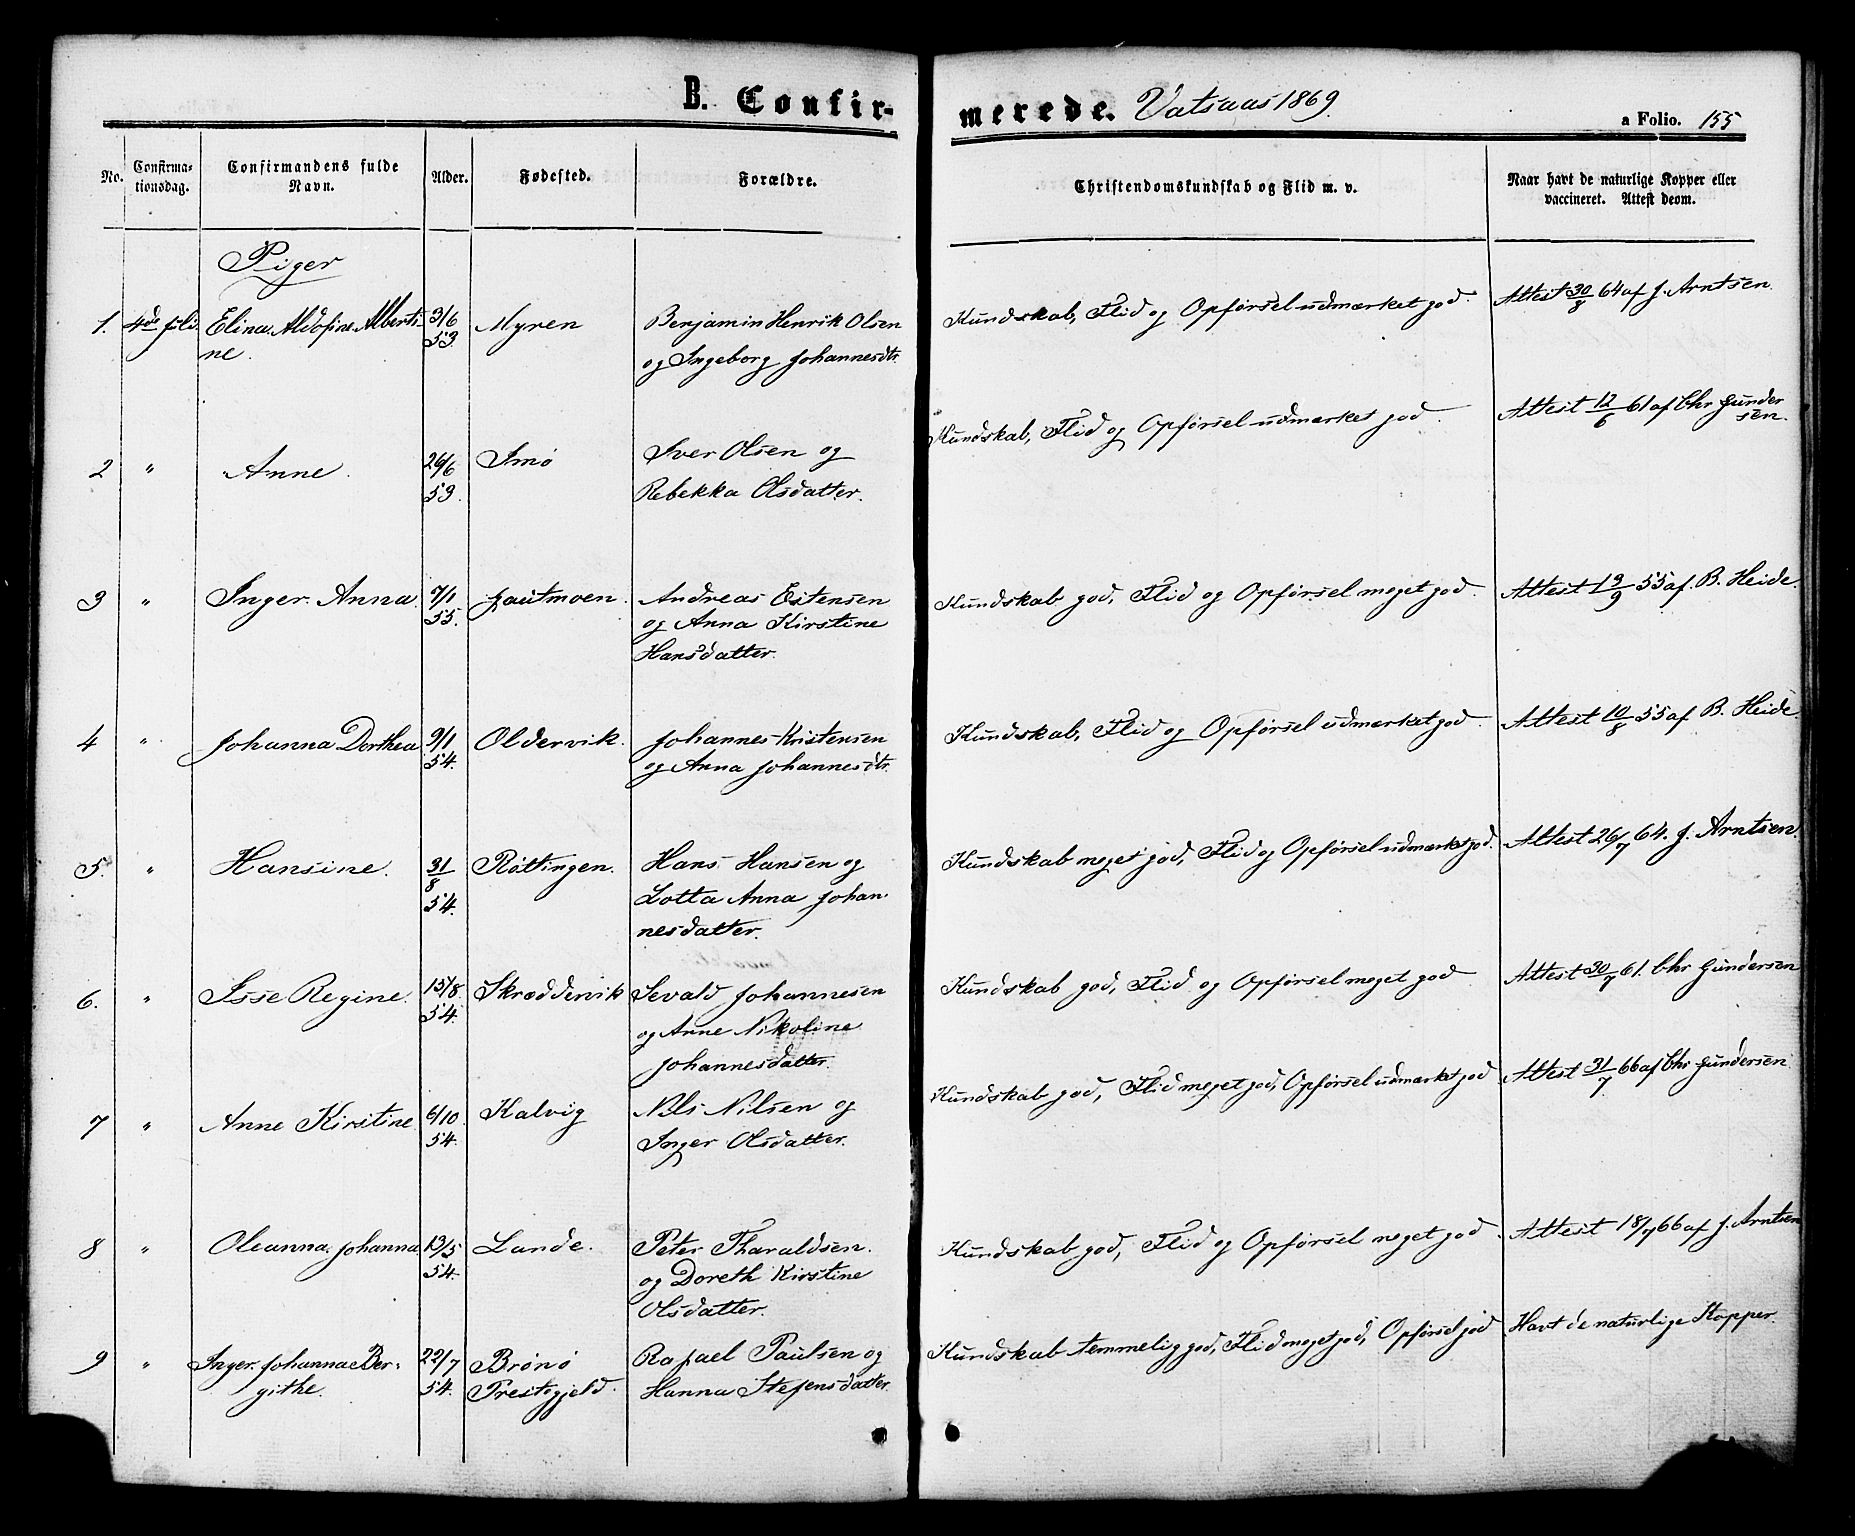 B. Confir-
merede. Vatsaas 1869.
a Folio. 155
No.
Confirma-
tionsdag.
Confirmandens fulde
Navn.
Alder.
Fødested.
Forældre.
Christendomskundskab og Flid m. v.
Naar havt de naturlige Kopper eller
vaccineret. Attest deom.
Piger
1. 4de Juli Elina Aldofine Alberti- 3/6 Myren Benjamin Henrik Olsen Kundskab, Flid og Opførsel udmærket god. Attest 30/8 64 af J. Arntsen.
ne. 53 og Ingeborg Johannesdtr.
2 " Anne. 26/6 Imø Iver Olsen og Kundskab, Flid og Opførsel udmærket god. Attest 12/6 61 af Chr Gunder
53. Rebekka Olsdatter. sen.
3 " Inger Anna 7/1 Gautmoen. Andreas Estensen Kundskab god, Flid og Opførsel meget god. Attest 19/9 55 af B. Heide.
55. og Anna Kirstine
Hansdatter.
4 " Johanna Dorthea 9/1 Oldervik. Johannes Kristensen Kundskab, Flid og Opførsel udmærket god. Attest 10/8 55 af B. Heide.
54. og Anna Johannesdtr.
5. " Hansine. 31/8 Røttingen. Hans Hansen og Kundskab meget god, Flid og Opførsel udmærket god. Attest 26/7 64. J. Arntsen.
54. Lotta Anna Johan-
nesdatter.
6. " Isse Regine. 15/8 Skræddervik Sevald Johannesen Kundskab god, Flid og Opførsel meget god. Attest 30/7 61. Chr Gundersen
54. og Anne Nikoline
Johannesdatter.
7 " Anne Kirstine 6/10 Kalvig Nils Nilsen og Kundskab god, Flid meget god, Opførsel udmærket god Attest 31/7 66 af Chr Gundersen
54. Inger Olsdatter.
8 " Oleanna Johanna 13/5 Lande. Peter Tharaldsen. Kundskab god, Flid og Opførsel meget god. Attest 18/7 66 af J. Arntsen
54. og Doreth Kirstine
Olsdatter.
9 " Inger Johanna Ber- 22/7 Brønø Rafael Paulsen og Kundskab temmelig god, Flid meget god, Opførsel god Havt de naturlige Kopper.
githe. 54. Prestegjeld. Hanna Stefensdatter.